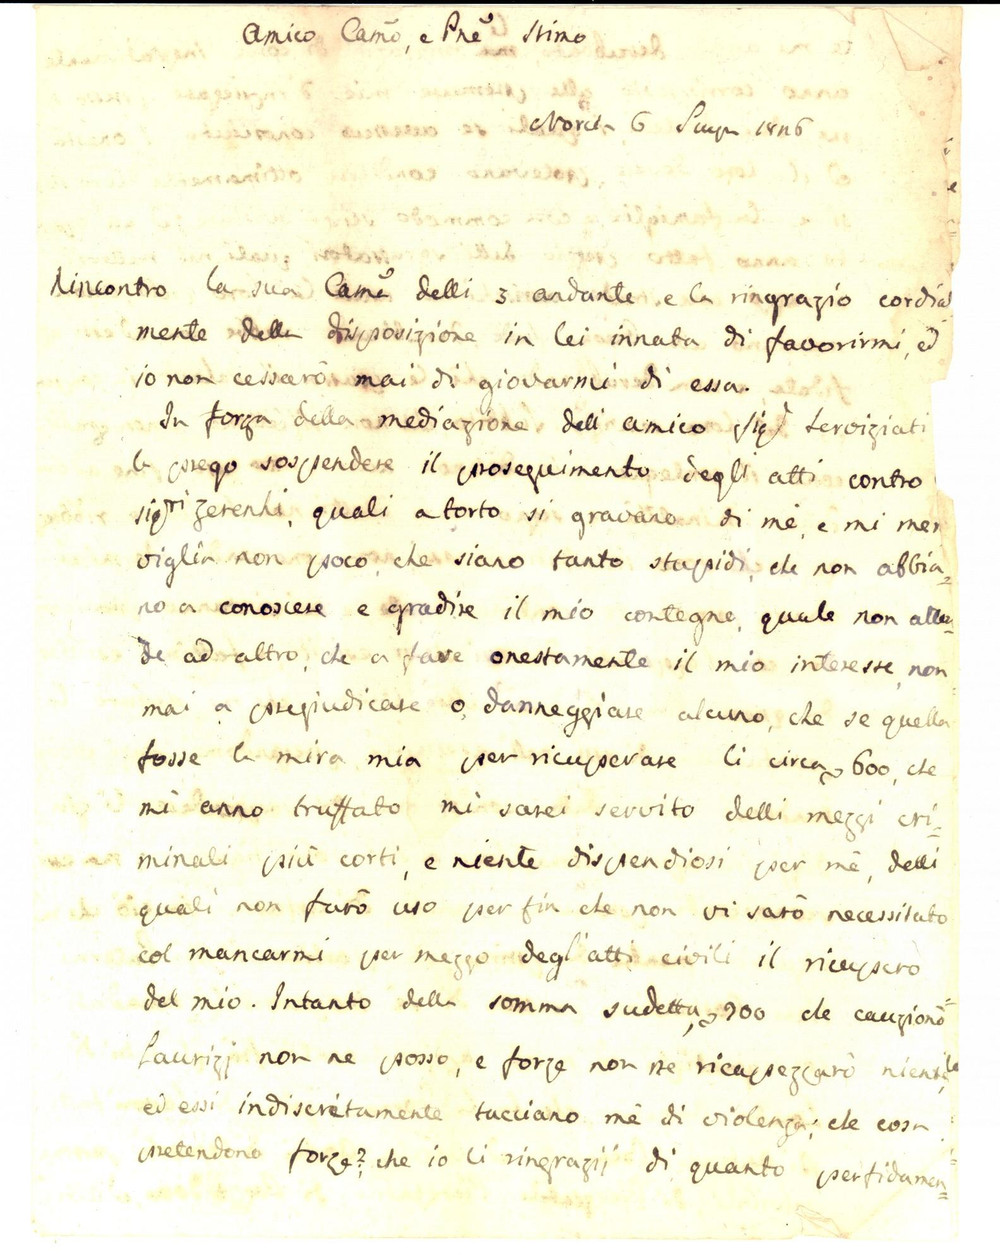 Amico Camõ, e Pnẽ Stimo
Norcia 6 1826
Rincontro la sua Camã delli 3 andante e la ringrazio cordial
mente della disposizione in lei innata di favorirmi, ed
io non cesserò mai di giovarmi di essa.
In forza della mediazione dell amico Sigr Serviziati
la prego sospendere il proseguimento degli atti contro
sigri Zerenhi, quali a torto si gravano di mè, e mi mera
viglia non poco, che siano tanto stupidi, che non abbia=
no a conoscere e gradire il mio contegne, quale non allu=
de ad altro, che a fare onestamente il mio interesse, non
mai a pregiudicare o danneggiare alcuno, che se quella
fosse la mira mia per ricuperare li circa 600, che
mi anno truffato mi sarei servito delli mezzi cri=
minali più corti, e niente dispendiosi per mè, delli
quali non farò uso per fin che non vi sarò necessitato
col mancarmi per mezzo degl'atti civili il ricupero
del mio. Intanto della somma sudetta, 900 che cauzionò=
Laurizj non ne posso, e forze non ne ricupezzarò niente
ed essi indiscretamente tacciano mè di violenza; che cosa
pretendono forze? che io li ringrazij di quanto perfidamen=